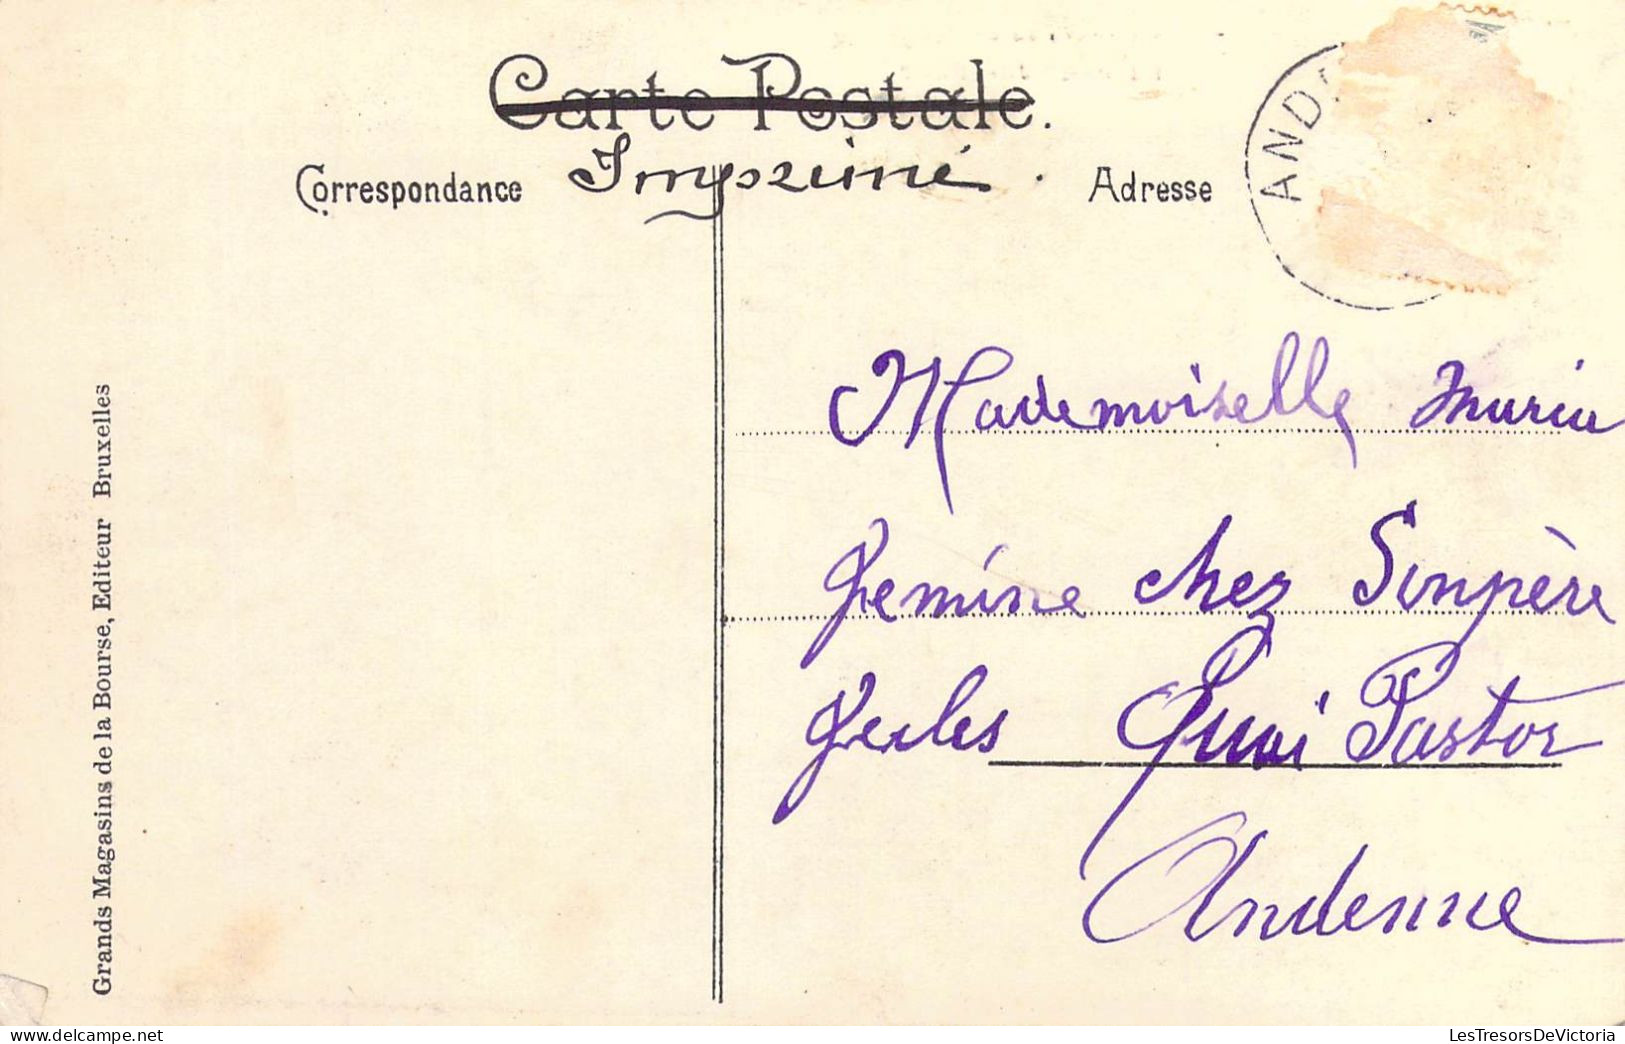 Carte Postale.
Imprimé.
Correspondance
Adresse
AND
Mademoiselle Maria
Gemine chez Sonpère
Quai Pastor
Andenne
Grands Magasins de la Bourse, Editeur Bruxelles
delcampe.net
LesTresorsDeVictoria